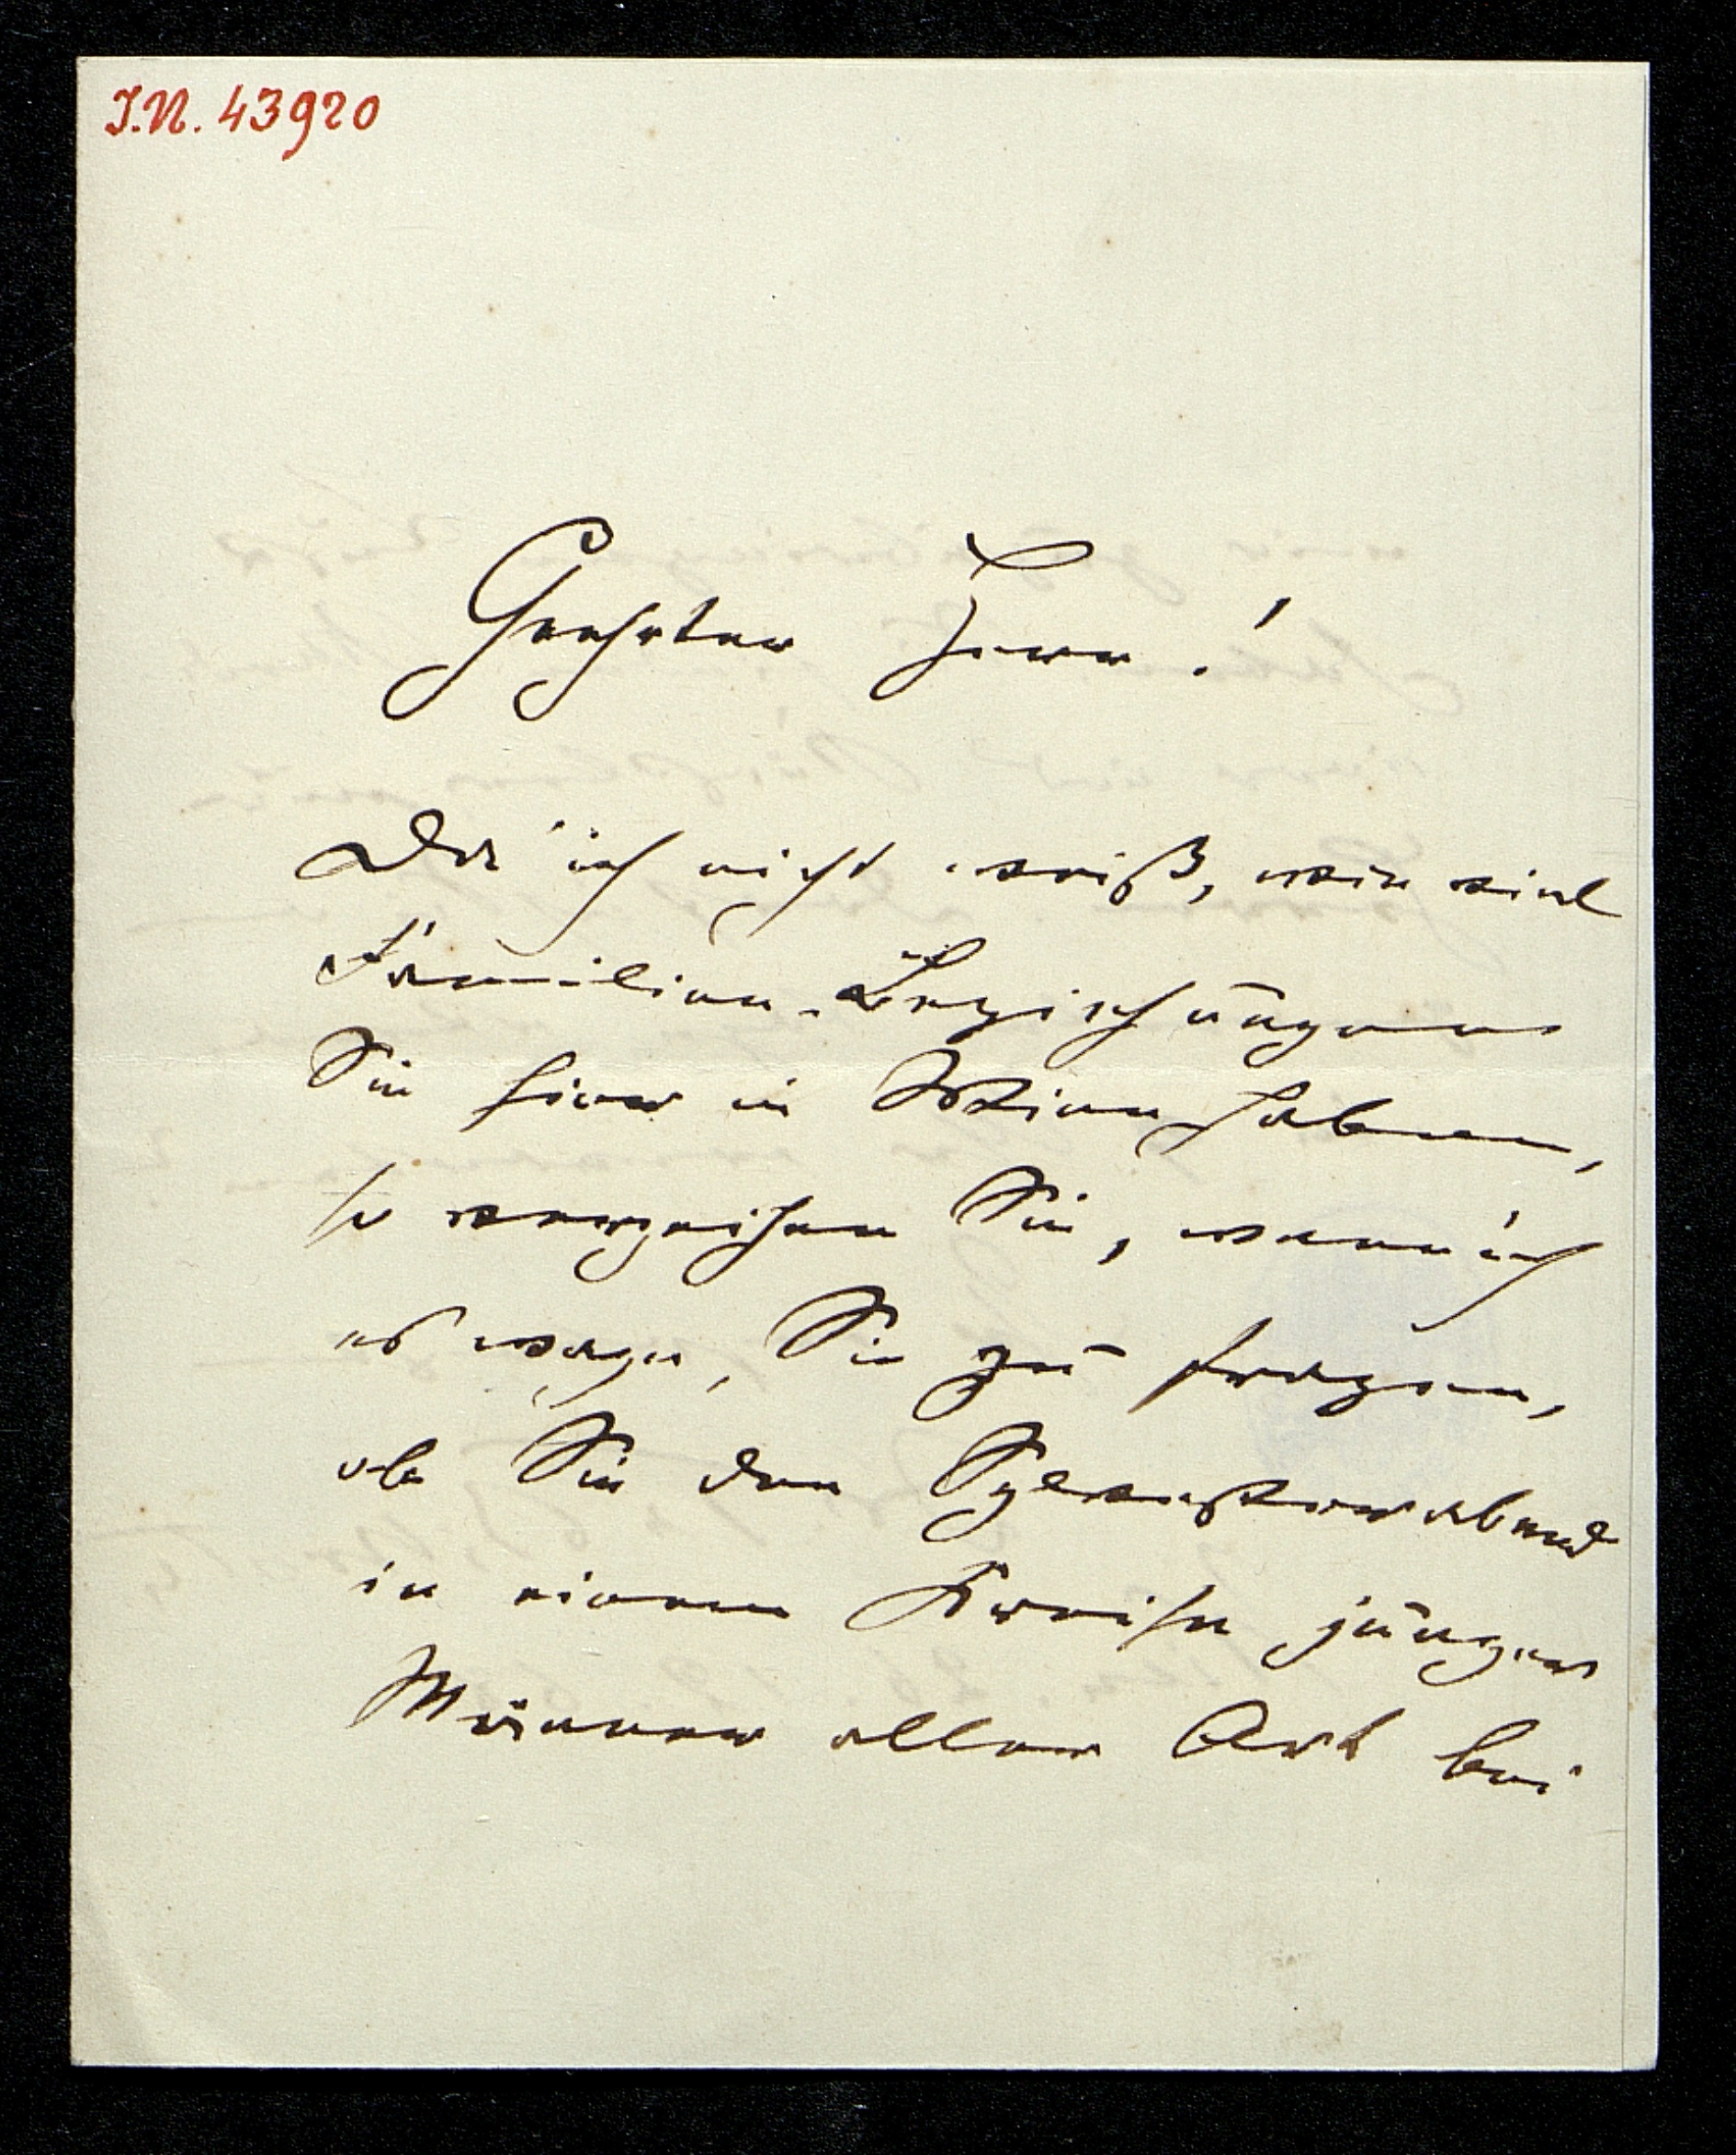 I.N. 43920
Geehrter Herr!
Da ich nicht weiß, wie viel
Familien-Beziehungen
Sie hier in Wien haben,
so verzeihen Sie, wenn ich
es wage, Sie zu fragen,
ob Sie den Sylvesterabend
in einem Kreise junger
Männer aller Art bei